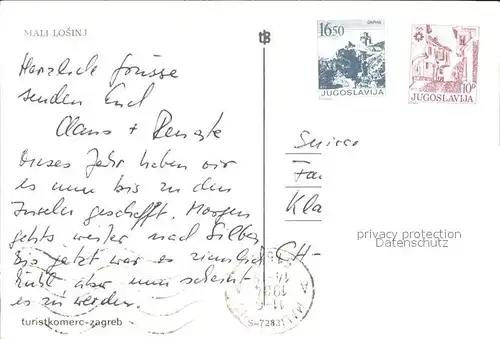 MALI LOŠINJ
Herzliche Grüsse
senden Euch
Claus + Renate
Dieses Jahr haben wir
es nun bis zu den
Inseln geschafft. Morgen
gehts weiter nach Silba
Bis jetzt war es ziemlich
kühl aber nun scheint
es zu werden.
turistkomerc-zagreb
16.50
JUGOSLAVIJA
10.-
JUGOSLAVIJA
Suisse
Fam
Kla
CH-
privacy protection
Datenschutz
S-72831